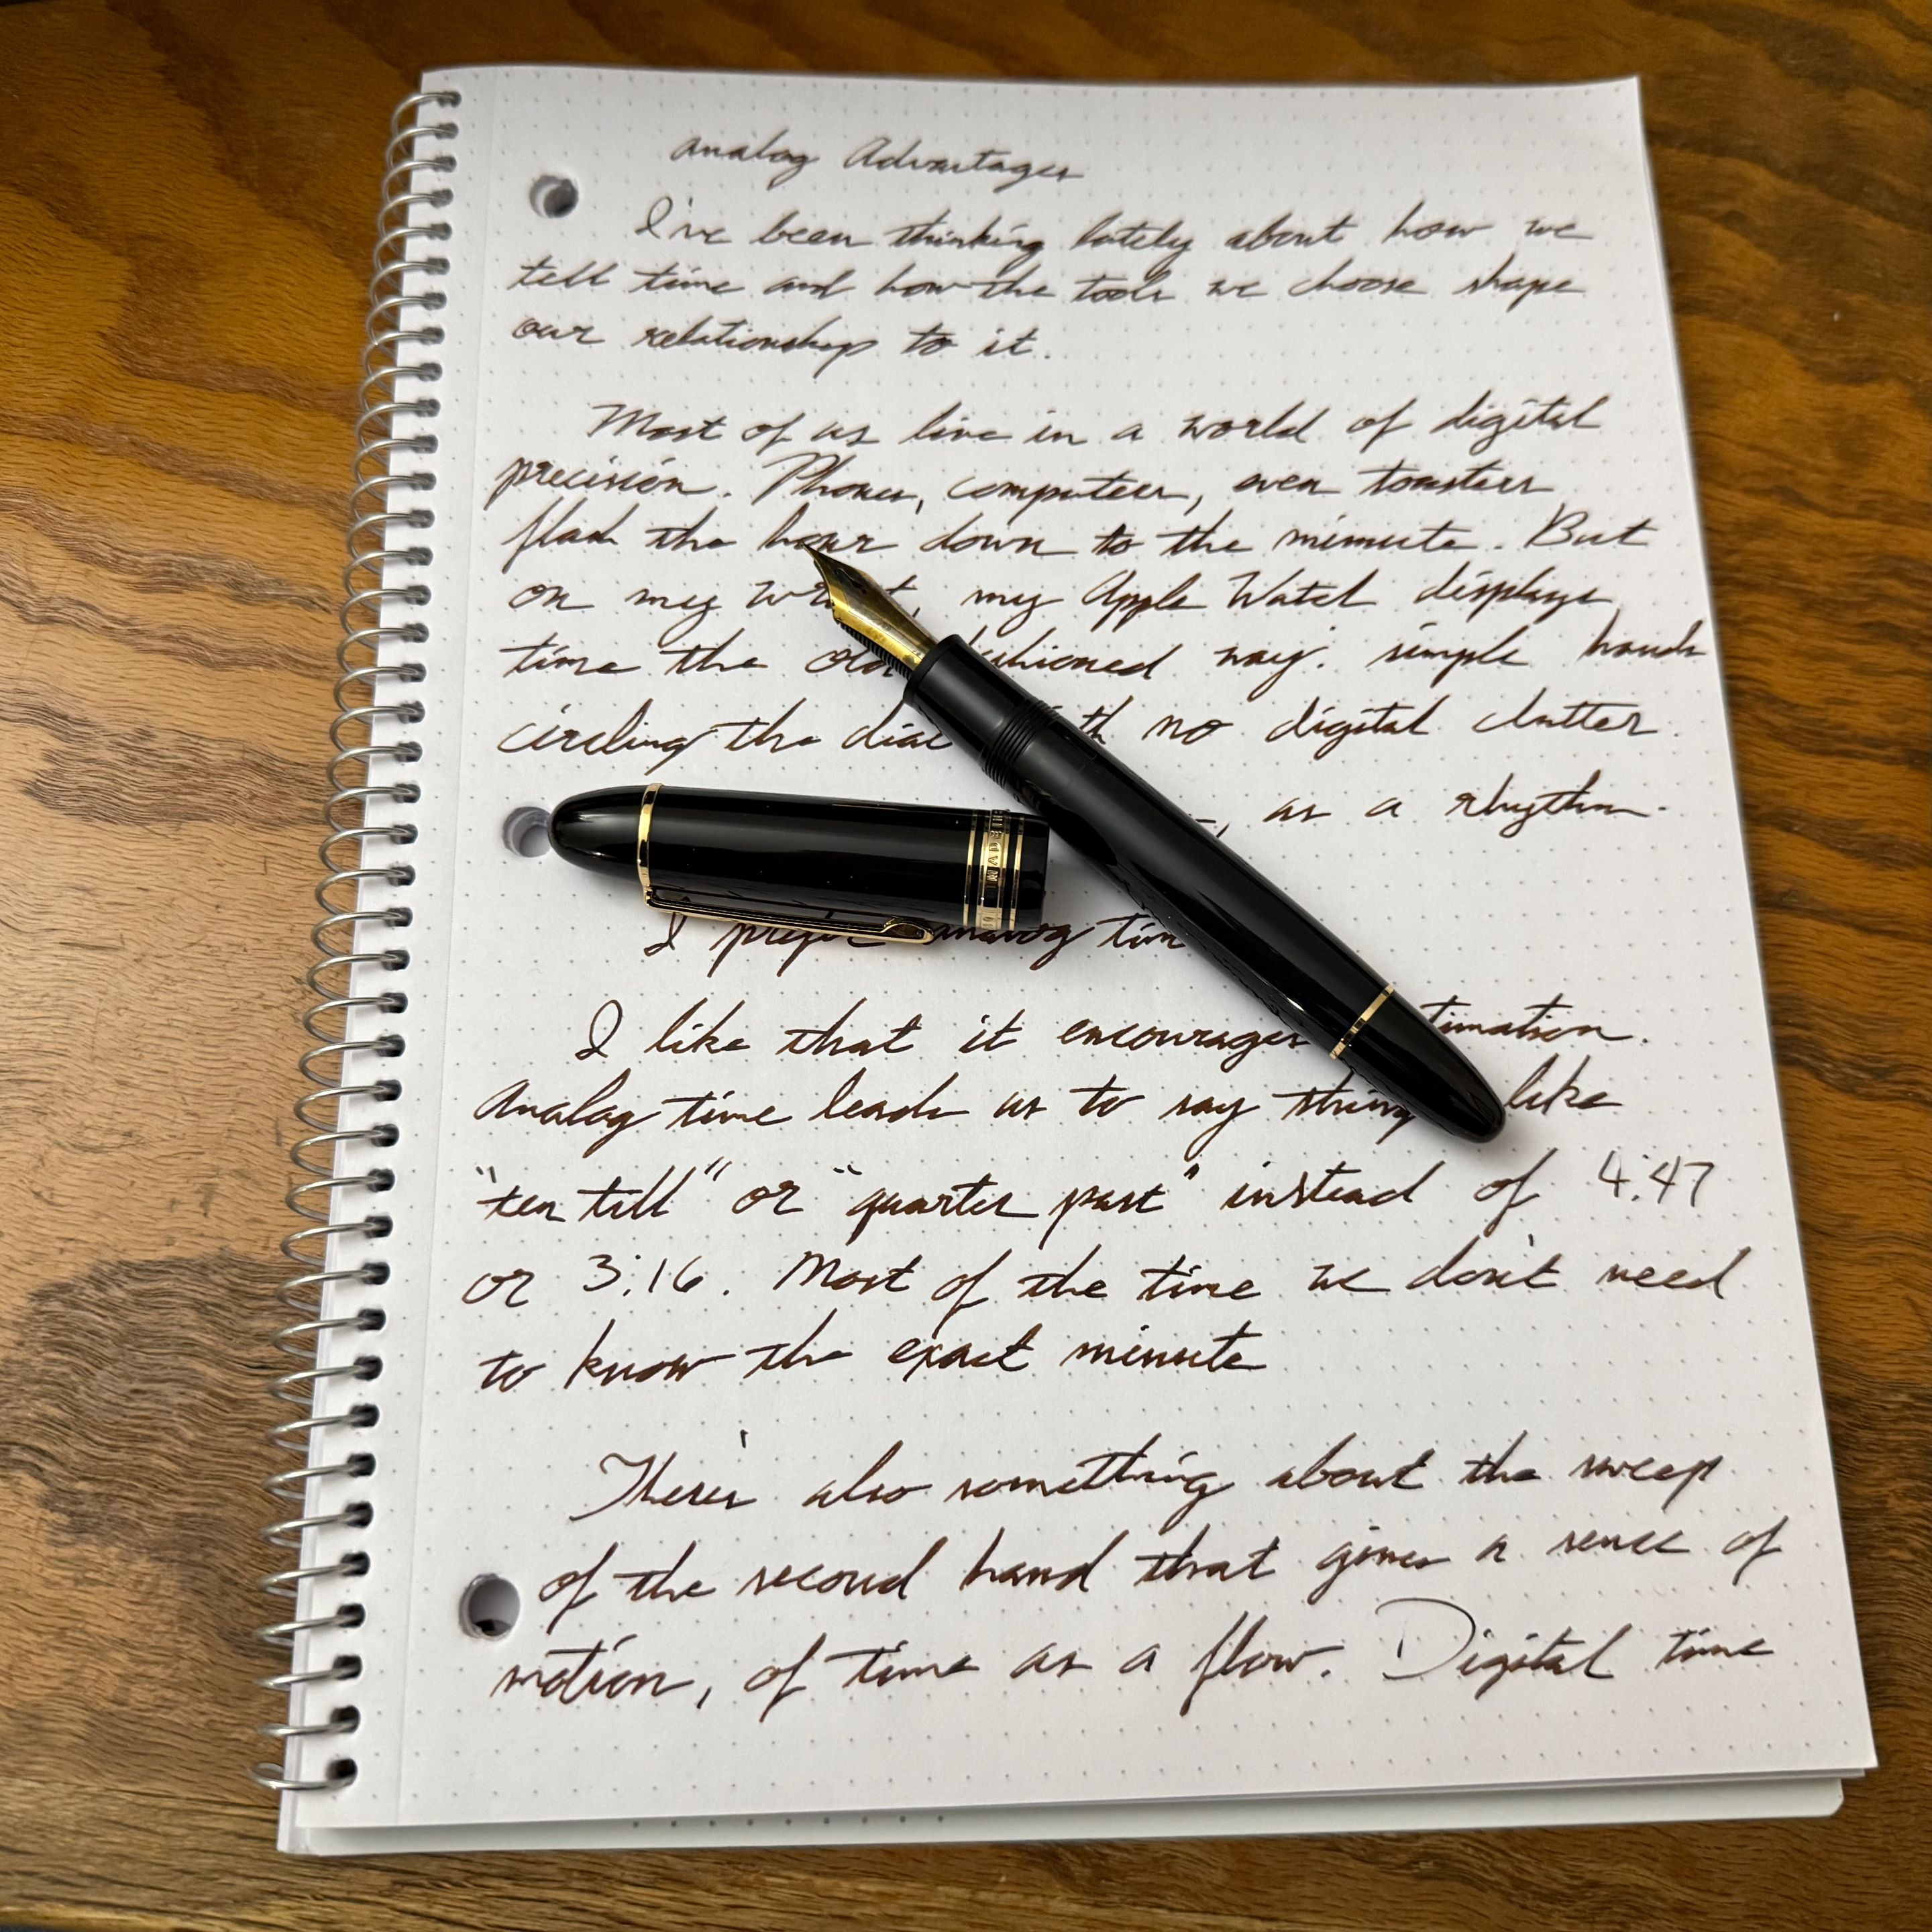 Analog Advantages
I've been thinking lately about how we
tell time and how the tools we choose shape
our relationship to it.
Most of us live in a world of digital
precision. Phones, computers, even toasters
flash the hour down to the minute. But
on my my Apple Watch displays
time the old way. simple hands
circling the dial no digital clutter.
, as a rhythm.
MADE IN
I prefer analog
I like that it encourages
Analog time leads us to say things like
"ten till" or "quarter past" instead of 4:47
or 3:16. Most of the time we don't need
to know the exact minute
There's also something about the sweep
of the second hand that gives a sense of
motion, of time as a flow. Digital time